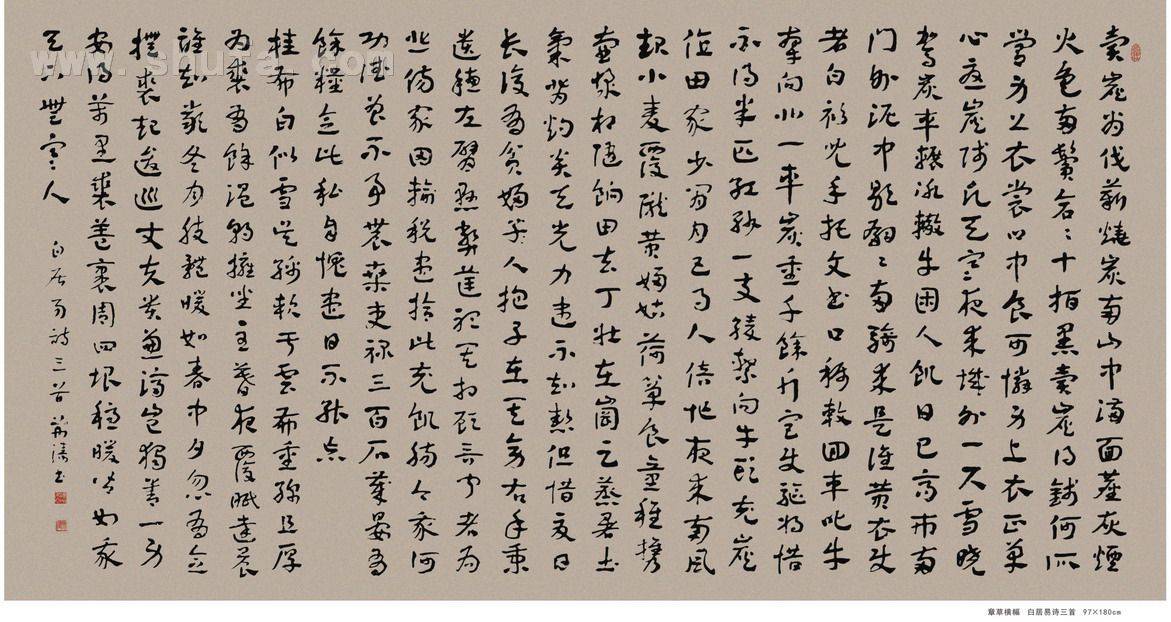 賣炭翁伐薪燒炭南山中滿面塵灰煙
火色兩鬢蒼〻十指黑賣炭得錢何所
營身上衣裳口中食可憐身上衣正單
心憂炭賤願天寒夜來城外一尺雪曉
駕炭車輾冰轍牛困人飢日已高市南
門外泥中歇翩〻兩騎來是誰黃衣使
者白衫兒手把文書口稱敕回車叱牛
牽向北一車炭重千餘斤官使驅將惜
不得半匹紅紗一丈綾繫向牛頭充炭
值田家少閒月五月人倍忙夜來南風
起小麥覆隴黃婦姑荷簞食童稚攜
壺漿相隨餉田去丁壯在崗足蒸暑土
氣背灼炎天光力盡不知熱但惜夏日
長復有貧婦人抱子在其旁右手秉
遺穗左臂懸敝筐聽其相顧言聞者為
悲傷家田輸稅盡拾此充飢腸今我何
功德曾不事農桑吏祿三百石歲晏有
餘糧念此私自愧盡日不能忘
桂布白似雪吳綿軟于雲布重綿且厚
為裘有餘溫朝擁坐至暮夜覆眠達晨
誰知嚴冬月肢體暖如春中夕忽有念
撫裘起逡巡丈夫貴兼濟豈獨善一身
安得萬里裘蓋裹周四垠穩暖皆如我
天下無寒人
白居易詩三首
章草横幅 白居易诗三首 97×180cm